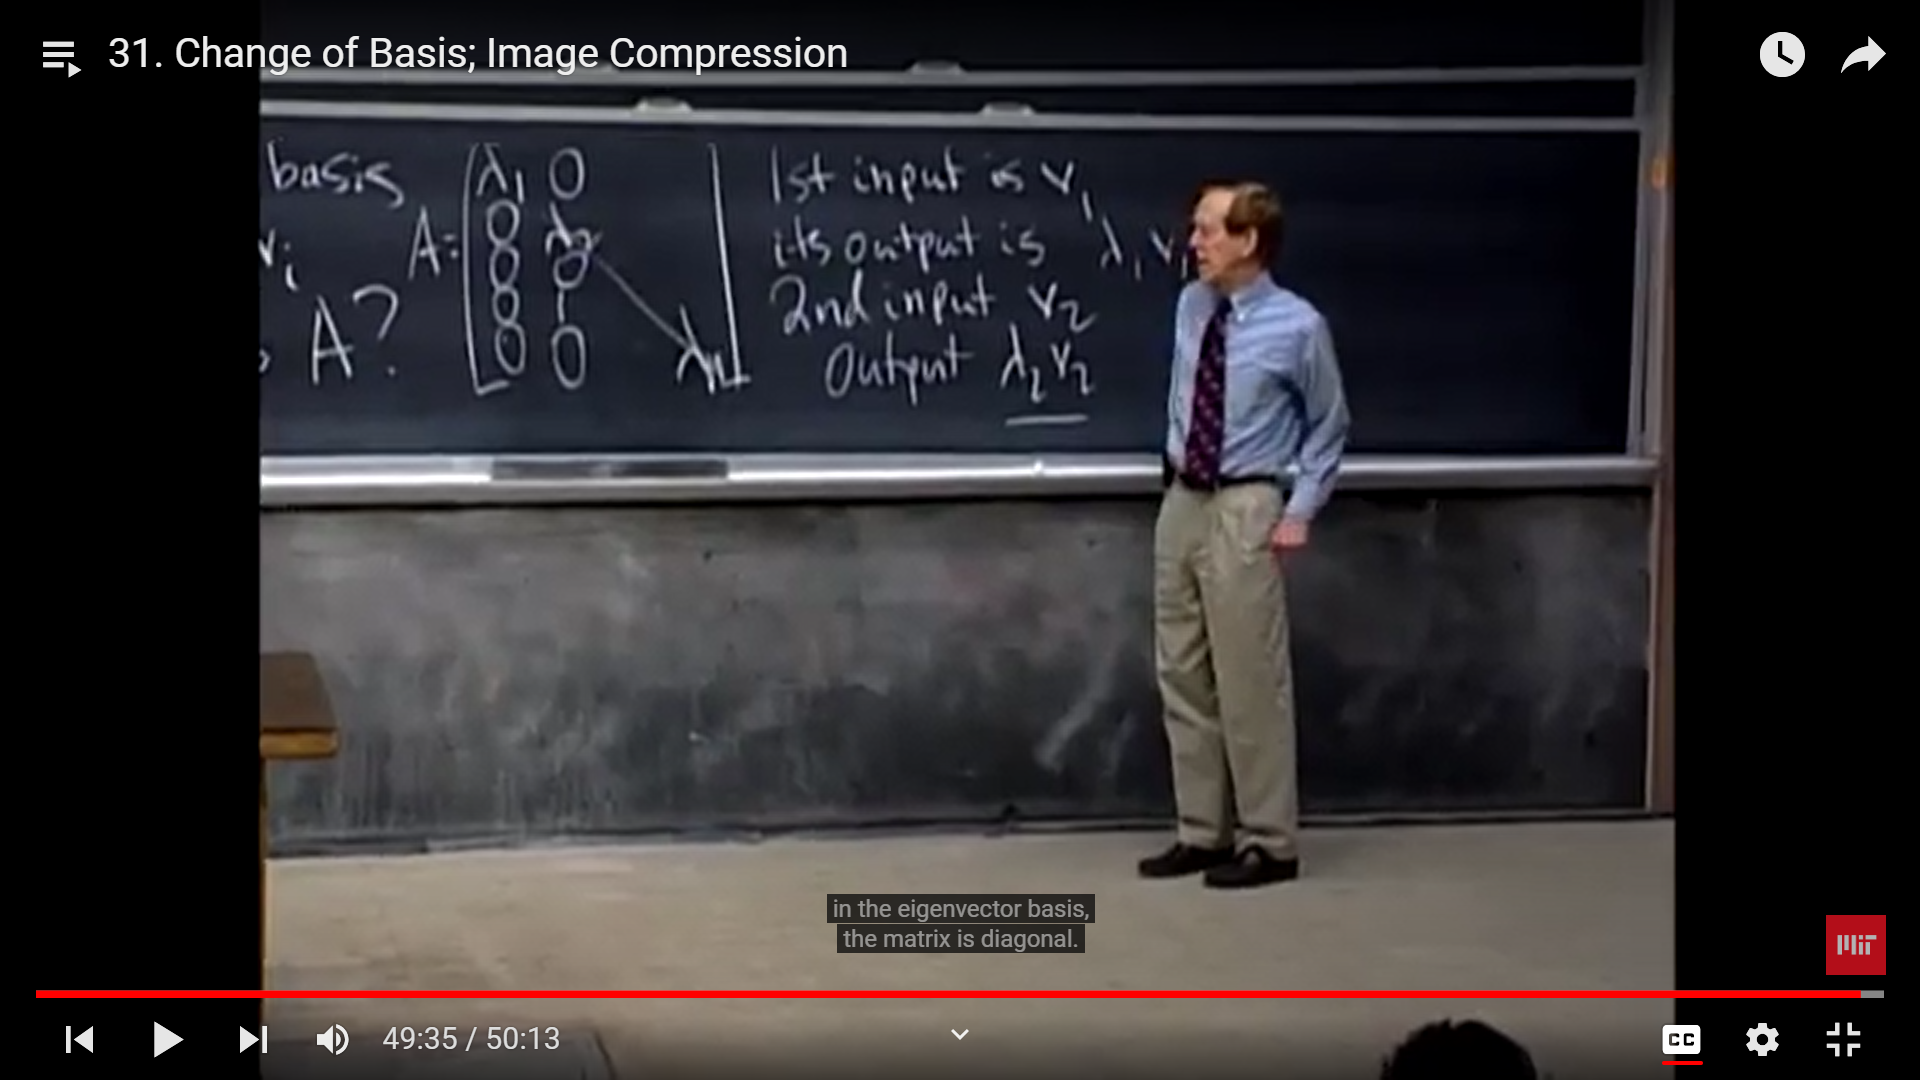 31. Change of Basis; Image Compression
basis
vi
A?
A=
λ1 0
0 λ2
0 0
0
0 0
λn
1st input is v1
its output is λ1 v1
2nd input v2
Output λ2 v2
in the eigenvector basis,
the matrix is diagonal.
MIT
49:35 / 50:13
CC